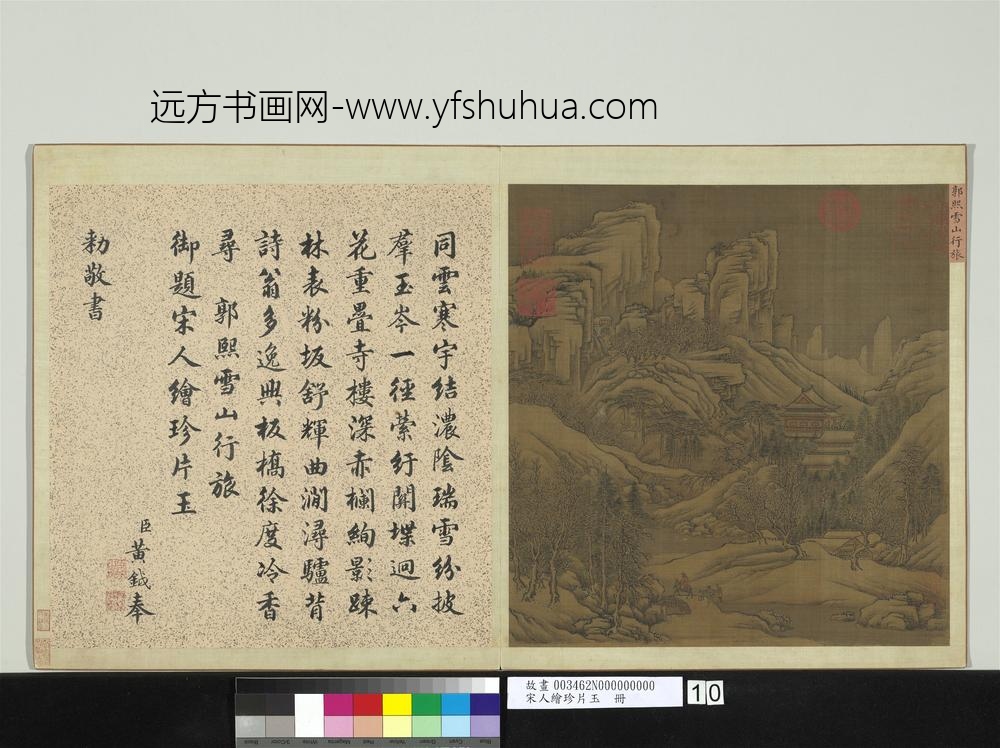 远方书画网-www.yfshuhua.com
郭熙雪山行旅
同雲寒宇結濃陰瑞雪紛披
羣玉岑一徑縈紆開堞迥六
花重疊寺樓深赤欄絢影疎
林表粉坂舒輝曲澗潯驢背
詩翁多逸興板橋徐度冷香
尋 郭熙雪山行旅
御題宋人繪珍片玉
臣黃鉞奉
勑敬書
故畫 003462N000000000
宋人繪珍片玉 冊
10
Black
3/Color
White
Magenta
Red
Yellow
Green
Cyan
Blue